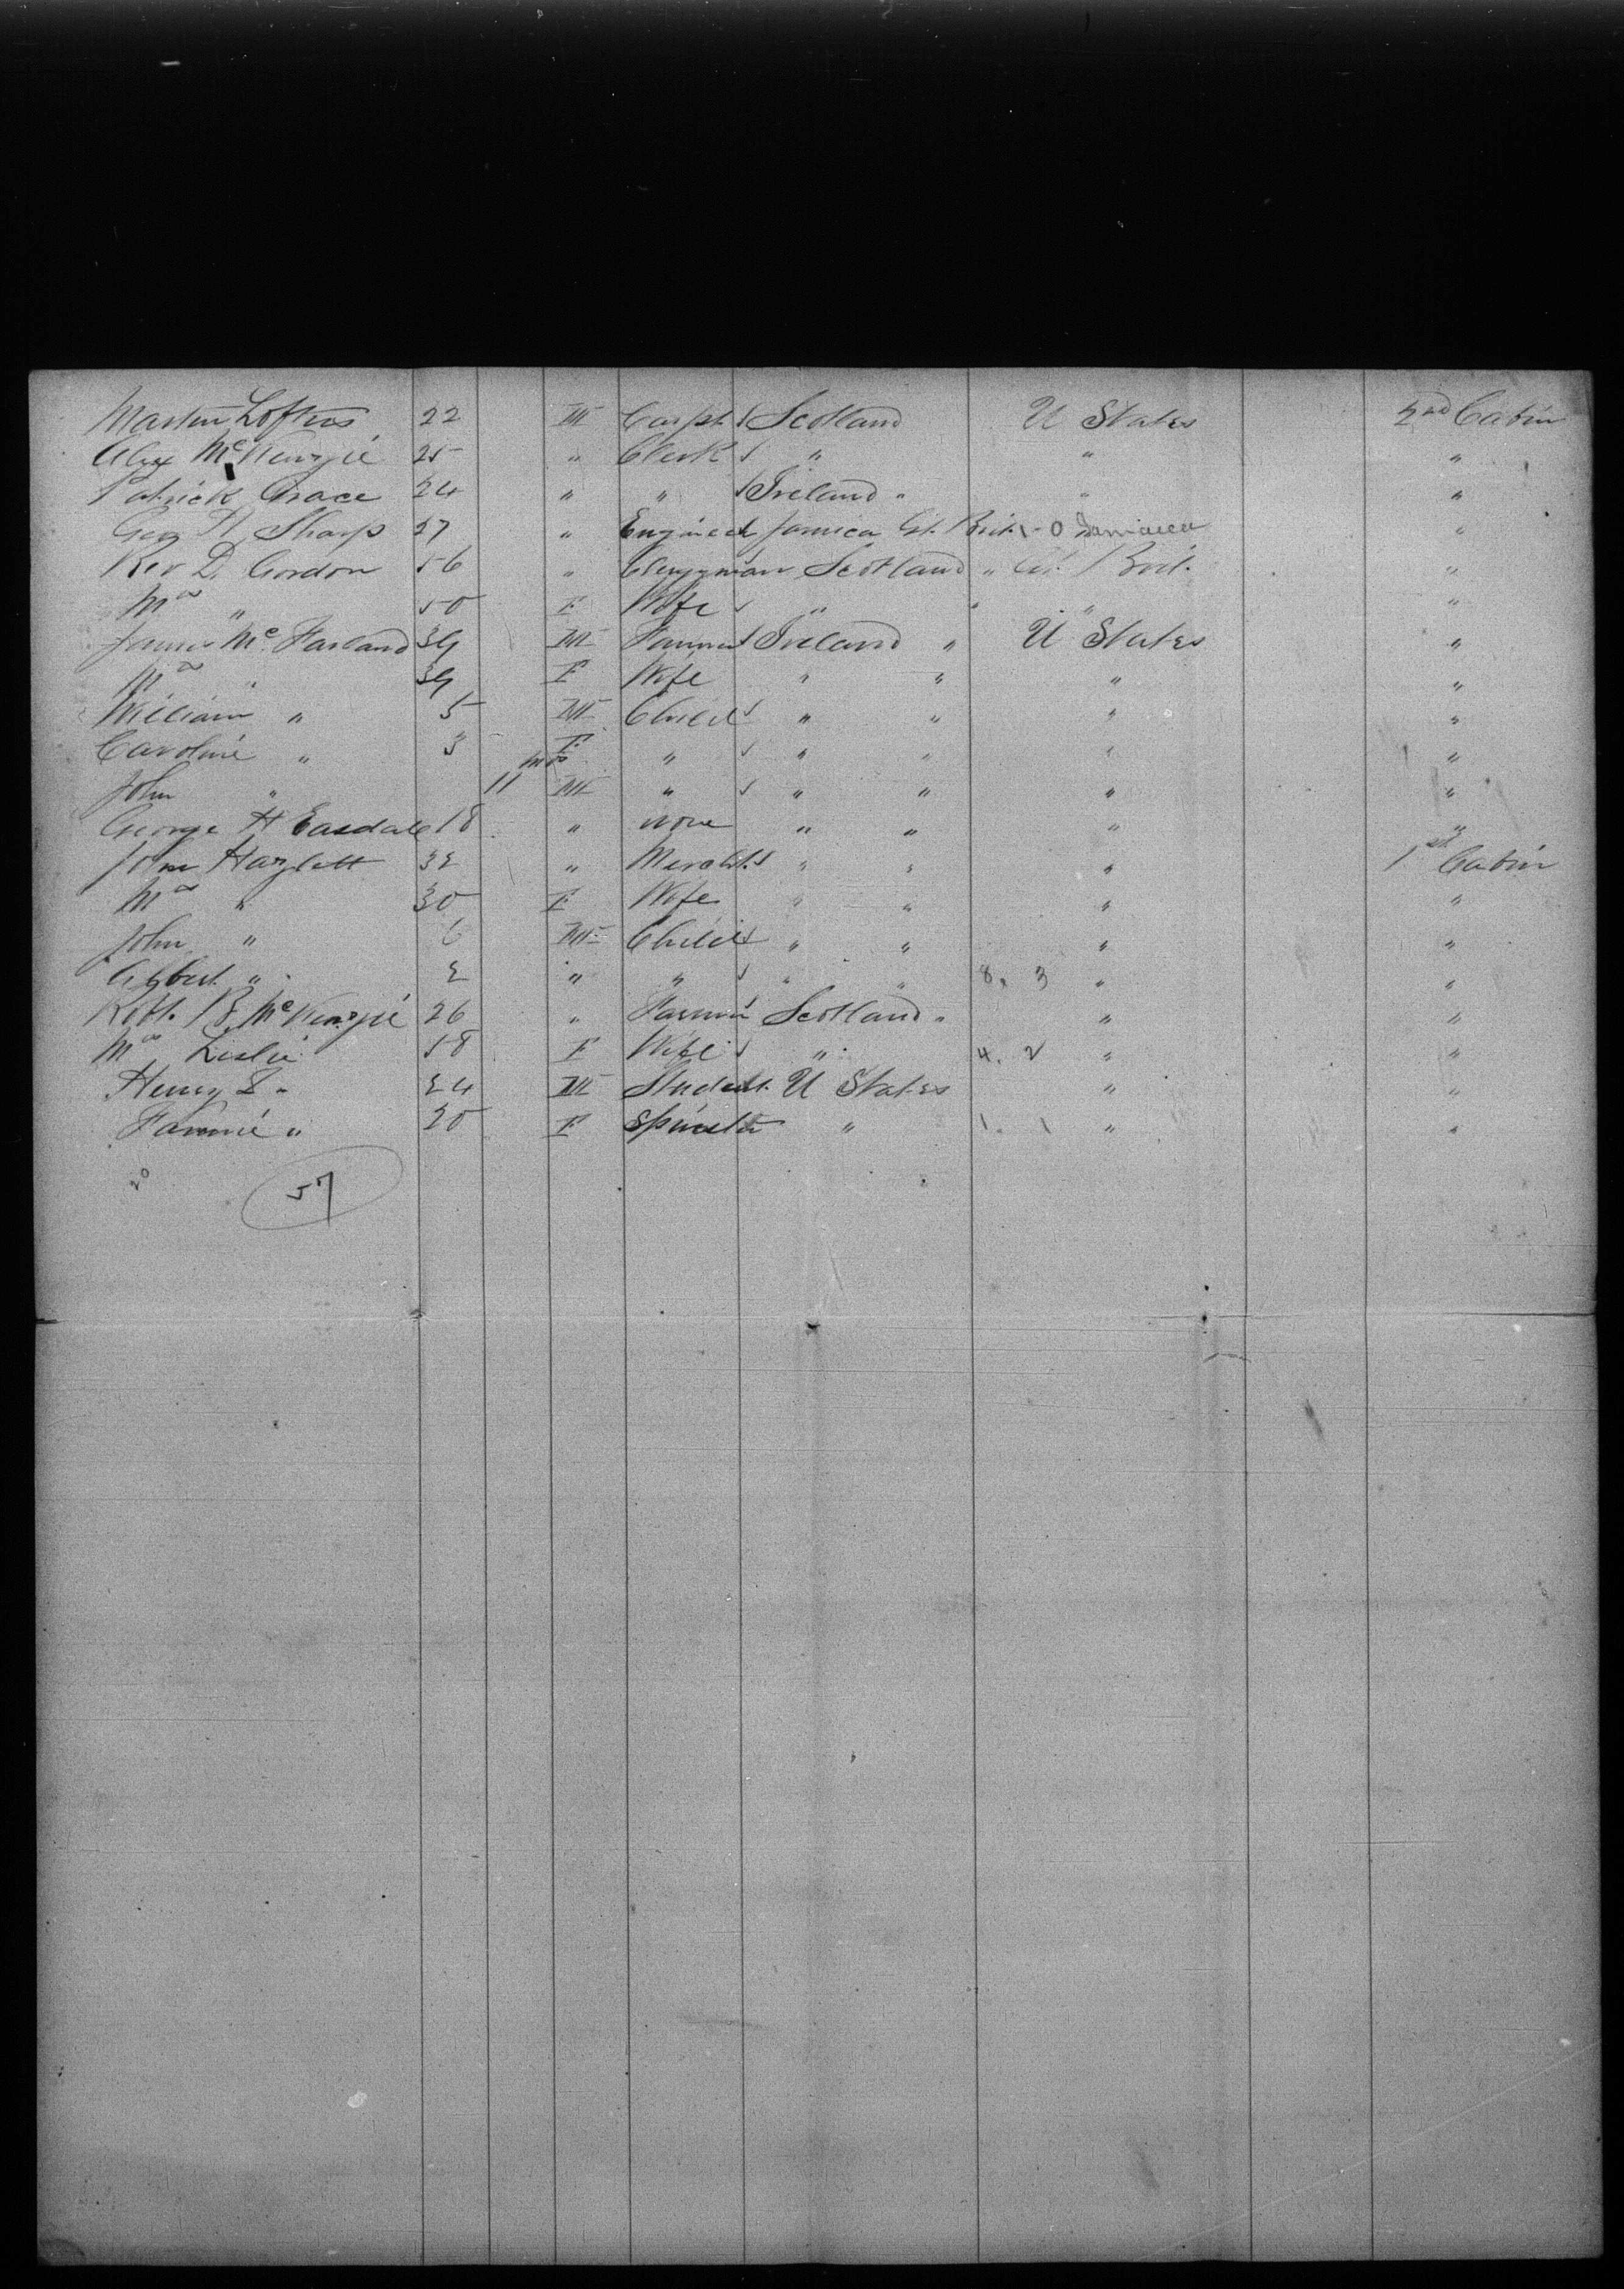 Martin Loftus 22 M Carpt Scotland U States 2nd Cabin
Alex McKenzie 25 " Clerk " " "
Patrick Grace 24 " " Ireland " " "
Geo H Sharp 27 " Engineer Jamica Gt. Brit. 1-0 Jamaica "
Rev D. Gordon 56 " Clergyman Scotland " Gt. Brit. "
Mrs " 50 F Wife " " " "
James McFarland 39 M Farmer Ireland " U States "
Mrs " 39 F Wife " " " "
William " 5 M Child " " " "
Caroline " 3 F " " " " "
John " 11 mos M " " " " "
George H Easdale 18 " none " " " "
John Hazlett 32 " Mercht. " " " 1st Cabin
Mrs " 30 F Wife " " " "
John " 6 M Child " " " "
" 2 " " " " 8. 3 " "
Robt. B McKenzie 26 " Farmer Scotland " " "
Mrs Leslie 58 F Wife " 4. 2 " "
Henry L " 24 M Student U States " "
Fannie " 20 F Spinster " 1. 1 " "
20 57